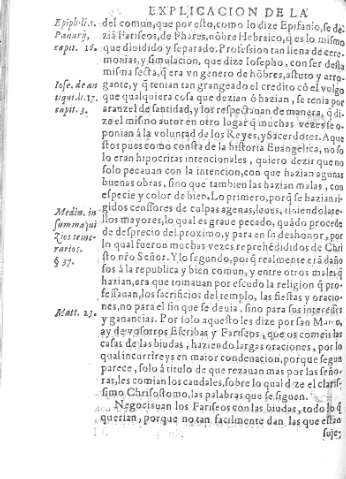 EXPLICACION DE LA
Epiph. li. 1.
Panarÿ,
capit. 16.
del comun, que por esto, como lo dize Epifanio, se dezia
Fariseos, de Phares, nōbre Hebraico, q̃ es lo mismo
que diuidido y separado. Profession tan llena de cere-
monias, y simulacion, que dize Iosepho, con ser desta
misma secta, q̃ era vn genero de hōbres, astuto y arro-
Iose. de an
tiqui. li. 17.
capit. 3.
gante, y q̃ tenian tan grangeado el credito cō el vulgo
que qualquiera cosa que dezian ò hazian, se tenia por
aranzel de santidad, y los respectauan de manera, q̃ di-
ze el mismo autor en otro lugar q̃ muchas vezes se o-
ponian à la voluntad de los Reyes, y Sacerdotes. Aque
stos pues como consta de la historia Euangelica, no so
lo eran hipocritas intencionales, quiero dezir que no
solo pecauan con la intencion, con que hazian algunas
buenas obras, sino que tambien las hazian malas, con
especie y color de bien. Lo primero, porq̃ se hazian ri-
gidos censsores de culpas agenas, leues, tiniendolas
Medin. in
summa qui
Zios teme-
rarios.
§ 37.
llos mayores, lo qual es graue pecado, quādo procede
de desprecio del proximo, y para su deshonor, por
lo qual fueron muchas vezes reprehēdidos de Chri
sto ñro Señor. Y lo segundo, porq̃ realmente erā daño
sos à la republica y bien comun, y entre otros males q̃
hazian, era que tomauan por escudo la religion q̃ pro-
fessauan, los sacrificios del templo, las fiestas y oracio-
nes, no para el fin que se deuia, sino para sus interesses
Matt. 23.
y ganancias. Por solo aquesto les dize por san Mateo,
ay de vosotros Escribas y Fariseos, que os comeis las
casas de las biudas, haziendo largas oraciones, por lo
qual incurrireys en maior condenacion, porque segun
parece, solo à titulo de que rezauan mas por las seño-
ras, les comian los caudales, sobre lo qual dize el claris-
simo Chrisostomo, las palabras que se siguen.
Negociauan los Fariseos con las biudas, todo lo q̃
querian, porque no tan facilmente dan, las que estan
suje-